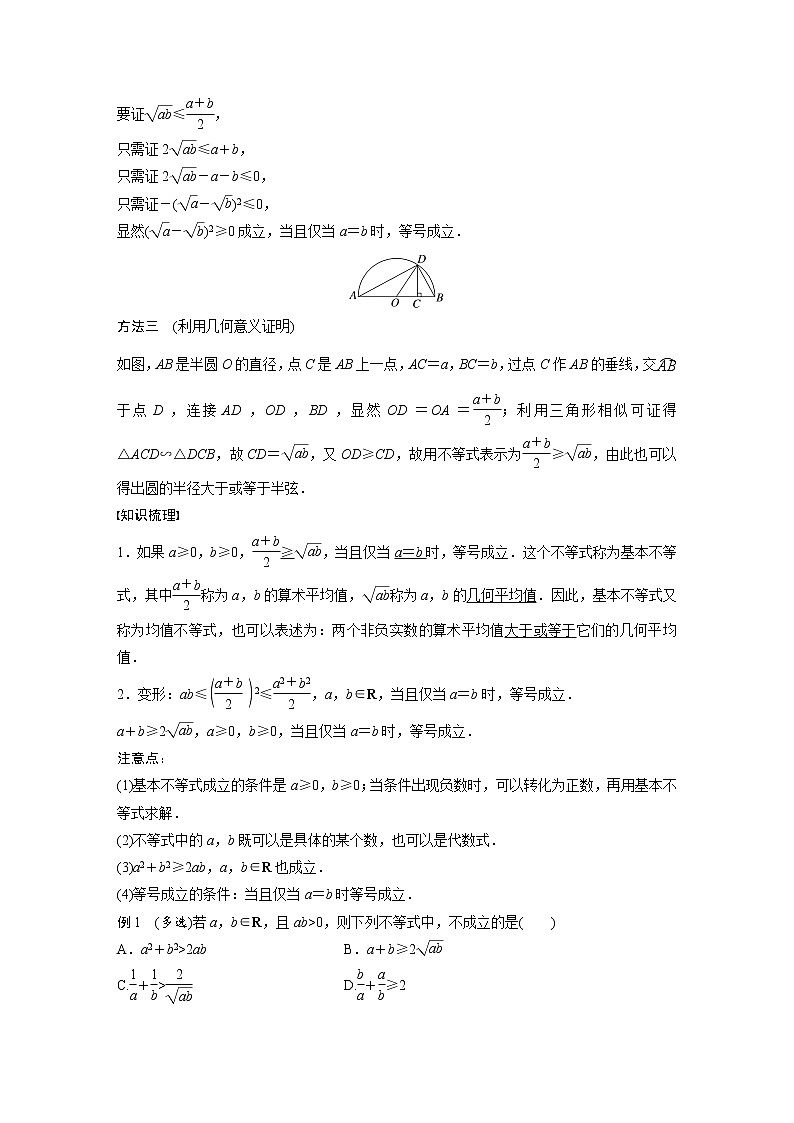 要证√ab≤(a+b)/2，
只需证 2√ab≤a+b，
只需证 2√ab－a－b≤0，
只需证－(√a－√b)²≤0，
显然(√a－√b)²≥0成立，当且仅当a＝b时，等号成立．
D
A O C B
方法三　(利用几何意义证明)
如图，AB是半圆O的直径，点C是AB上一点，AC＝a，BC＝b，过点C作AB的垂线，交AB
于点 D ，连接 AD ，OD ，BD ，显然 OD ＝OA ＝(a+b)/2；利用三角形相似可证得
△ACD∽△DCB，故CD＝√ab，又OD≥CD，故用不等式表示为(a+b)/2≥√ab，由此也可以
得出圆的半径大于或等于半弦．
知识梳理
1．如果a≥0，b≥0，(a+b)/2≥√ab，当且仅当a＝b时，等号成立．这个不等式称为基本不等
式，其中(a+b)/2称为a，b的算术平均值，√ab称为a，b的几何平均值．因此，基本不等式又
称为均值不等式，也可以表述为：两个非负实数的算术平均值大于或等于它们的几何平均
值．
2．变形：ab≤((a+b)/2)²≤(a²+b²)/2，a，b∈R，当且仅当a＝b时，等号成立．
a＋b≥2√ab，a≥0，b≥0，当且仅当a＝b时，等号成立．
注意点：
(1)基本不等式成立的条件是a≥0，b≥0；当条件出现负数时，可以转化为正数，再用基本不
等式求解．
(2)不等式中的a，b既可以是具体的某个数，也可以是代数式．
(3)a²＋b²≥2ab，a，b∈R也成立．
(4)等号成立的条件：当且仅当a＝b时等号成立．
例1　(多选)若a，b∈R，且ab>0，则下列不等式中，不成立的是(　　)
A．a²＋b²>2ab　　B．a＋b≥2√ab
C.1/a＋1/b>2/√ab　　D.b/a＋a/b≥2